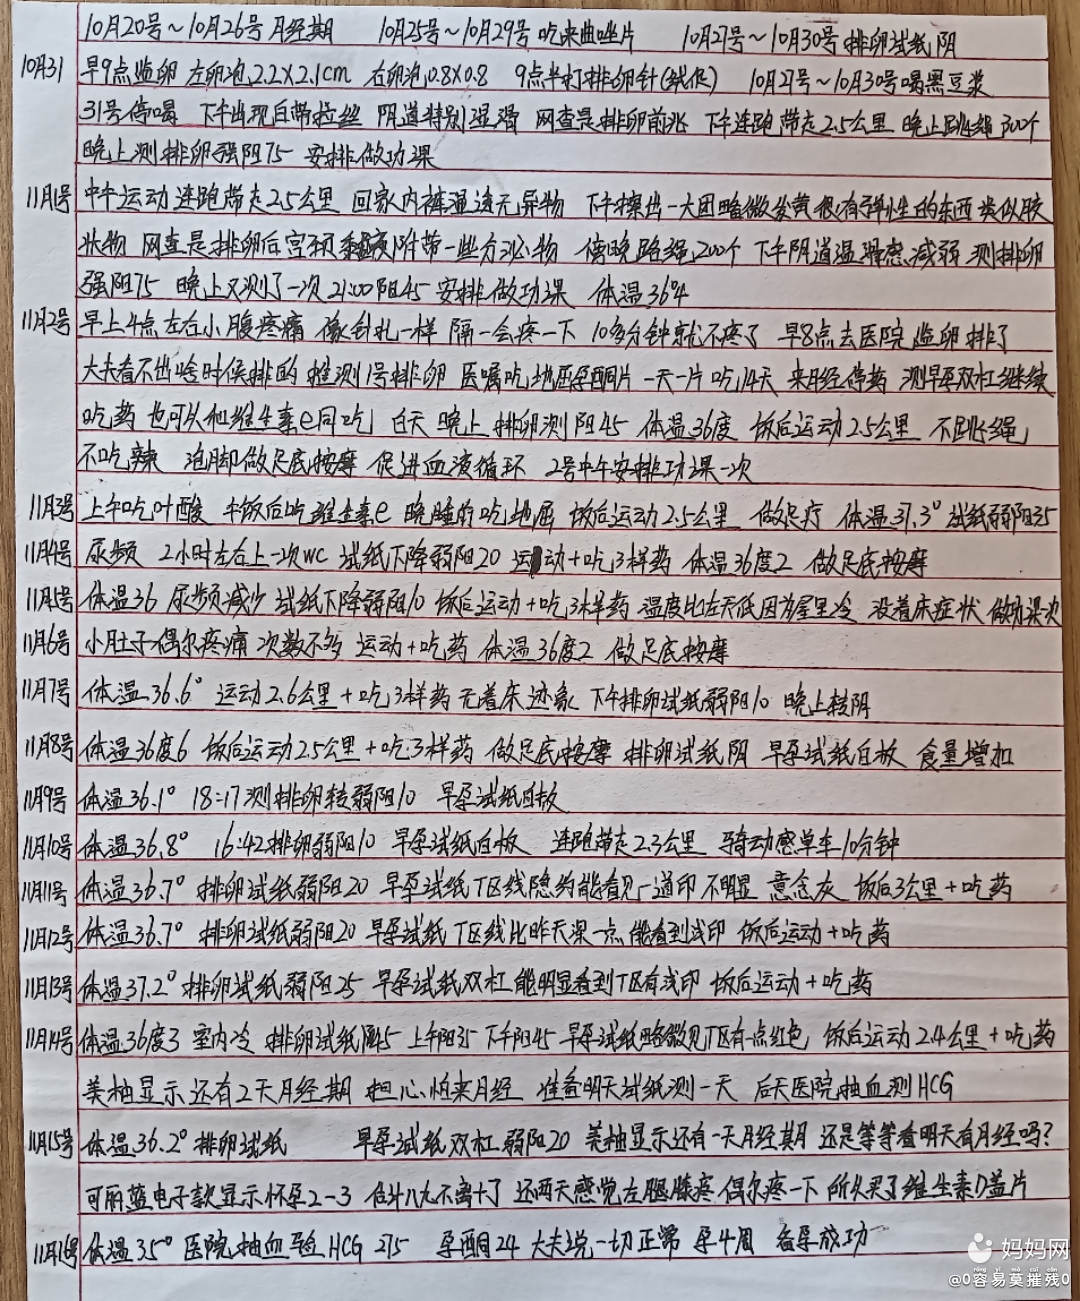 10月20号~10月26号 月经期 10月25号~10月29号 吃来曲唑片 10月27号~10月30号 排卵试纸阴
10月31 早9点监卵 左卵泡2.2×2.1cm 右卵泡0.8×0.8 9点半打排卵针(绒促) 10月27号~10月30号喝黑豆浆
31号停喝 下午出现白带拉丝 阴道特别湿滑 网查是排卵前兆 下午连跑带走2.5公里 晚上跳绳300个
晚上测排卵强阳75 安排做功课
11月1号 中午运动连跑带走2.5公里 回家内裤湿透无异物 下午擦出一大团略微发黄很有弹性的东西 类似胶
状物 网查是排卵后宫颈黏液附带一些分泌物 傍晚跳绳200个 下午阴道湿滑感减弱 测排卵
强阳75 晚上又测了一次21:00阳45 安排做功课 体温36°4
11月2号 早上4点左右小腹疼痛 像针扎一样 隔一会疼一下 10多分钟就不疼了 早8点去医院监卵排了
大夫看不出啥时候排的 推测1号排卵 医嘱吃地屈孕酮片 一天一片 吃14天 来月经停药 测早孕双杠继续
吃药 也可以和维生素e同吃 白天 晚上 排卵测阳45 体温36度 饭后运动2.5公里 不跳绳
不吃辣 泡脚做足底按摩 促进血液循环 2号中午安排功课一次
11月3号 上午吃叶酸 午饭后吃维生素e 晚睡前吃地屈 饭后运动2.5公里 做足疗 体温37.3° 试纸弱阳35
11月4号 尿频 2小时左右上一次wc 试纸下降弱阳20 运动+吃3样药 体温36度2 做足底按摩
11月5号 体温36 尿频减少 试纸下降弱阳10 饭后运动+吃3样药 温度比左天低因为屋里冷 没着床症状 做功课一次
11月6号 小肚子偶尔疼痛 次数不多 运动+吃药 体温36度2 做足底按摩
11月7号 体温36.6° 运动2.6公里+吃3样药 无着床迹象 下午排卵试纸弱阳10 晚上转阴
11月8号 体温36度6 饭后运动2.5公里+吃3样药 做足底按摩 排卵试纸阴 早孕试纸白板 食量增加
11月9号 体温36.1° 18:17测排卵转弱阳10 早孕试纸白板
11月10号 体温36.8° 16:42排卵弱阳10 早孕试纸白板 连跑带走2.3公里 骑动感单车10分钟
11月11号 体温36.7° 排卵试纸弱阳20 早孕试纸T区线隐约能看见一道印 不明显 意念灰 饭后3公里+吃药
11月12号 体温36.7° 排卵试纸弱阳20 早孕试纸T区线比昨天深一点 能看到浅印 饭后运动+吃药
11月13号 体温37.2° 排卵试纸弱阳25 早孕试纸双杠 能明显看到T区有浅印 饭后运动+吃药
11月14号 体温36度3 室内冷 排卵试纸 上午阳35 下午阳45 早孕试纸略微见T区有一点红色 饭后运动2.4公里+吃药
美柚显示还有2天月经期 担心怕来月经 准备明天试纸测一天 后天医院抽血测HCG
11月15号 体温36.2° 排卵试纸 早孕试纸双杠弱阳20 美柚显示还有一天月经期 还是等等看明天有月经吗?
可丽蓝电子款显示怀孕2-3 估计八九不离十了 还两天感觉左腿膝疼 偶尔疼一下 所以买了维生素D盖片
11月16号 体温35° 医院抽血验HCG 275 孕酮24 大夫说一切正常 孕4周 备孕成功
妈妈网
@0容易莫摧残0